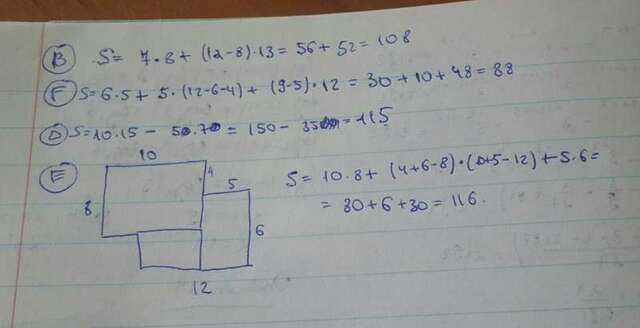 В S = 7·8 + (12-8)·13 = 56 + 52 = 108
Г S = 6·5 + 5·(12-6-4) + (9-5)·12 = 30 + 10 + 48 = 88
D S = 10·15 - 5·7 = 150 - 35 = 115
E
10
4
5
8
6
12
S = 10·8 + (4+6-8)·(10+5-12) + 5·6 =
= 80 + 6 + 30 = 116.